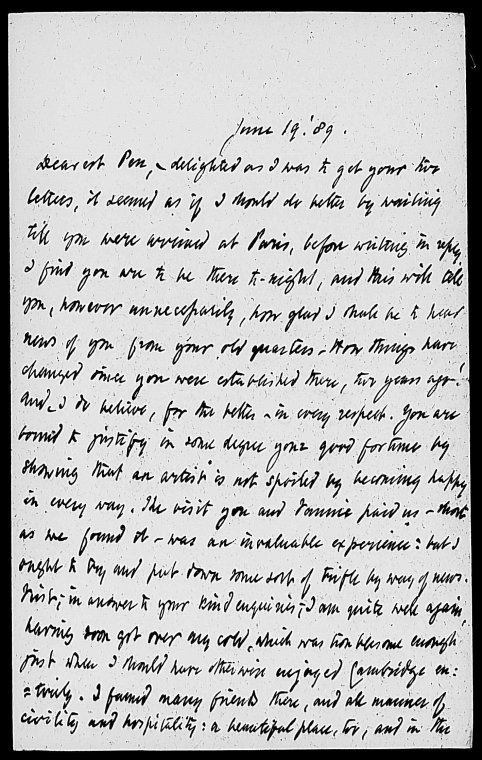 June 19. '89.
Dearest Pen, – delighted as I was to get your two
letters, it seemed as if I should do better by waiting
till you were arrived at Paris, before writing in reply.
I find you are to be there to-night, and this will tell
you, however unnecessarily, how glad I shall be to hear
news of you from your old quarters. How things have
changed since you were established there, two years ago!
And, I do believe, for the better – in every respect. You are
bound to justify in some degree your good fortune by
showing that an artist is not spoiled by becoming happy
in every way. The visit you and Fannie paid us – short
as we found it – was an invaluable experience: but I
ought to try and put down some sort of trifle by way of news.
First, in answer to your kind enquiries, I am quite well again,
having soon got over my cold, which was troublesome enough
just when I should have otherwise enjoyed Cambridge en:
=tirely. I found many friends there, and all manner of
civility and hospitality: a beautiful place, too, and in the